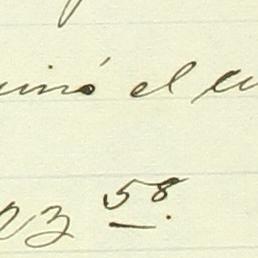 inó el
23 58.